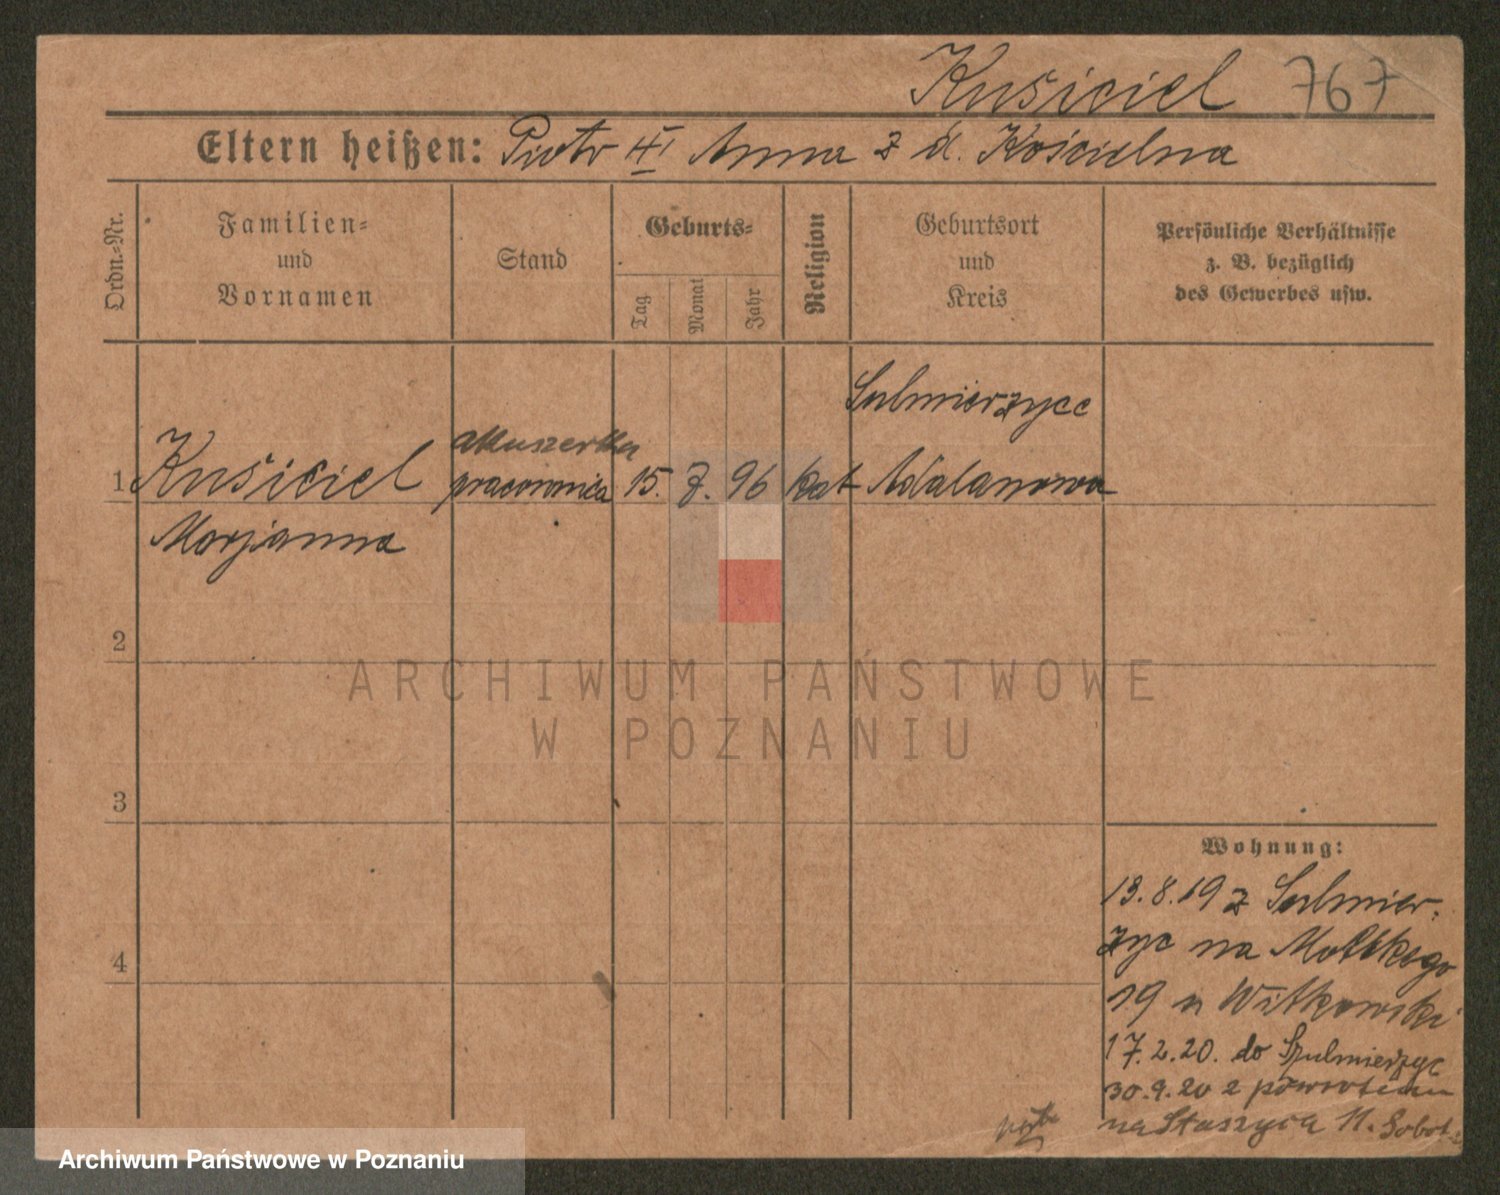 Kuśiciel 767
Eltern heißen: Piotr Anna z d. Kościelna
Ordn.-Nr.
Familien-
und
Vornamen
Stand
Geburts-
Tag
Monat
Jahr
Religion
Geburtsort
und
Kreis
Persönliche Verhältnisse
z. B. bezüglich
des Gewerbes usw.
Sulmierzyce
akuszerka
1 Kuśiciel pracownica 15. 7. 96 kat Adalanowa
Marjanna
2
ARCHIWUM PAŃSTWOWE
W POZNANIU
3
Wohnung:
13.8.19 z Sulmier-
zyc na
4
19 u Witkowski
17.2.20. do Szulmierzyc
30.9.20 z powrotem
na Staszyca 11.
Archiwum Państwowe w Poznaniu